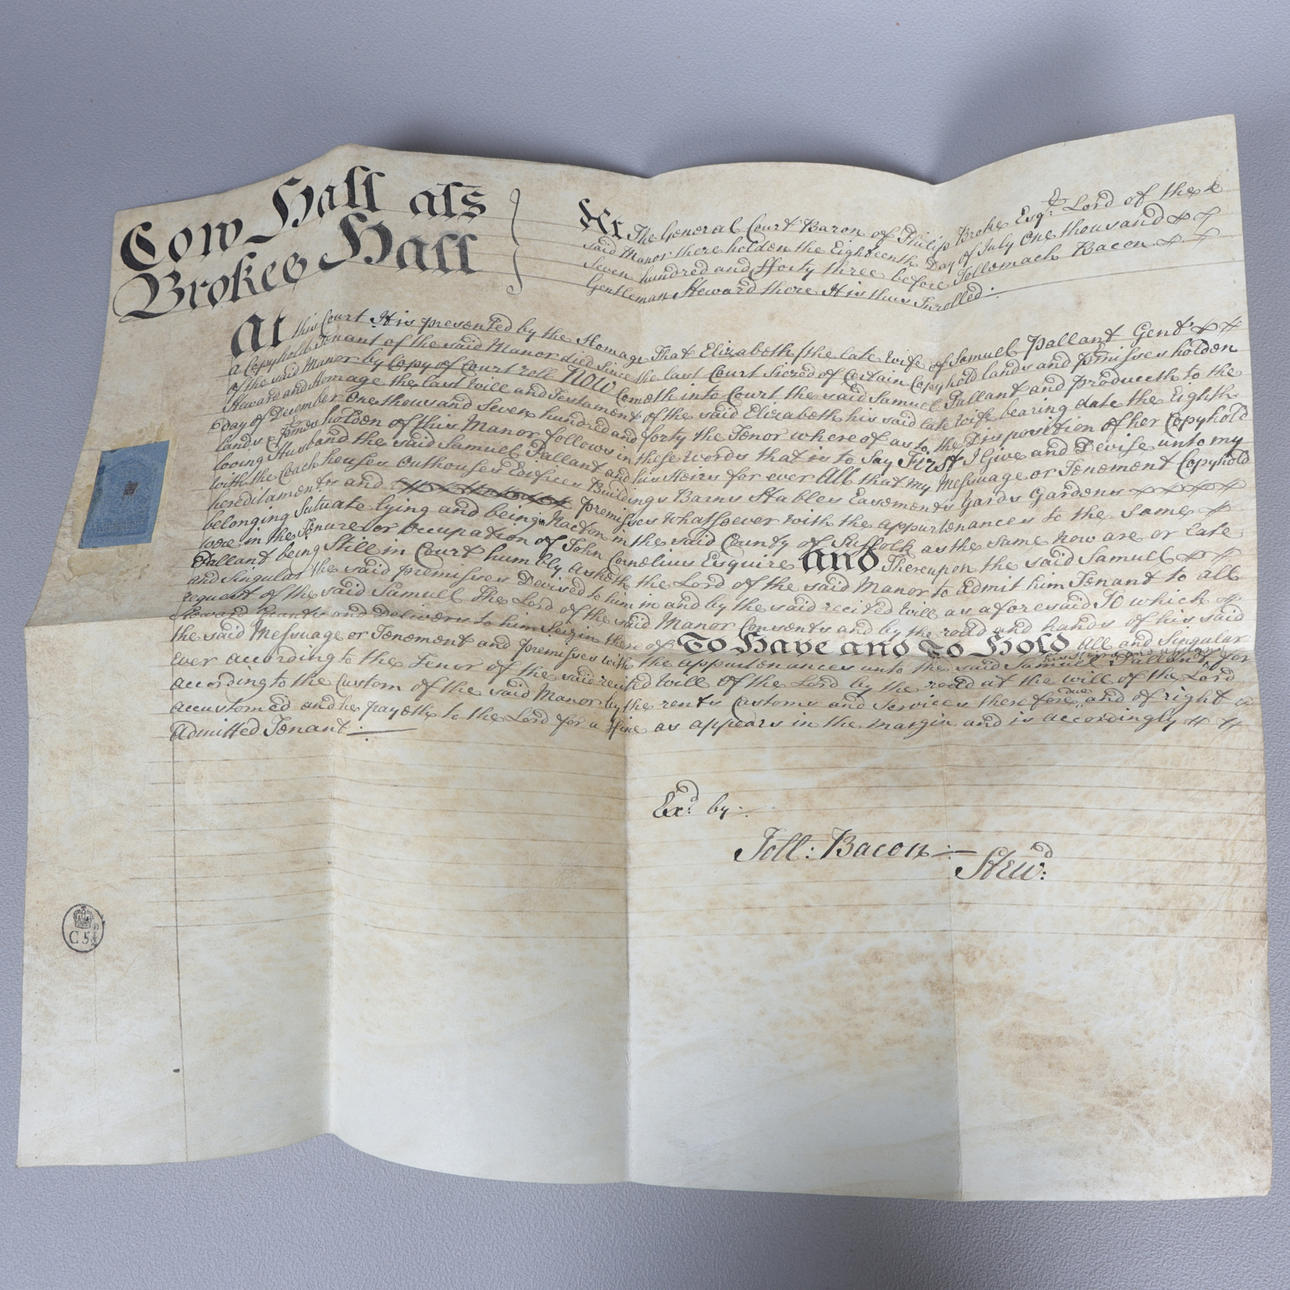 Cow Hall als
Brokes Hall
At The General Court Baron of Philip Broke Esqr. Lord of the
said Manor there holden the Eighteenth Day of July One thousand
Seven hundred and fforty three before Tollemach Bacon
Gentleman Steward there It is thus Inrolled:
At this Court It is presented by the Homage That Elizabeth the late Wife of Samuel Pallant Gent.
a Copyhold Tenant of the said Manor died since the last Court Seized of Certain Copyhold lands and premisses holden
of the said Manor by Copy of Court roll Now Cometh into Court the said Samuel Pallant and produceth to the
Steward and Homage the last Will and Testament of the said Elizabeth his said late Wife bearing date the Eighth
Day of December One thousand Seven hundred and forty the Tenor whereof as to the Disposition of her Copyhold
lands & holden of this Manor follows in these words that is to Say First I Give and Devise unto my
loving Husband the said Samuel Pallant and his Heirs for ever All that my Messuage or Tenement Copyhold
with the Coach houses Outhouses Edifices Buildings Barns Stables Easements Yards Gardens
hereditaments and premisses Whatsoever with the appurtenances to the same
belonging Scituate lying and being in Nacton in the said County of Suffolk as the same Now are or late
were in the Tenure or Occupation of John Cornelius Esquire And Thereupon the said Samuel
Pallant being Still in Court humbly asketh the Lord of the said Manor to admit him Tenant to all
and Singular the said premisses Devised to him in and by the said recited Will as aforesaid To which
request of the said Samuel The Lord of the said Manor Consents and by the rodd and hands of his said
Steward Grants and Delivers to him Seizin thereof To Have and To Hold All and Singular
the said Messuage or Tenement and premisses with the appurtenances unto the said Samuel Pallant for
ever according to the Tenor of the said recited Will of the Lord by the rodd at the will of the Lord
according to the Custom of the said Manor by the rents Customs and Services therefore due and of right
accustomed and he payeth to the Lord for a ffine as appears in the margin and is accordingly
admitted Tenant
Exd. by
Toll: Bacon
Stewd:
C 5